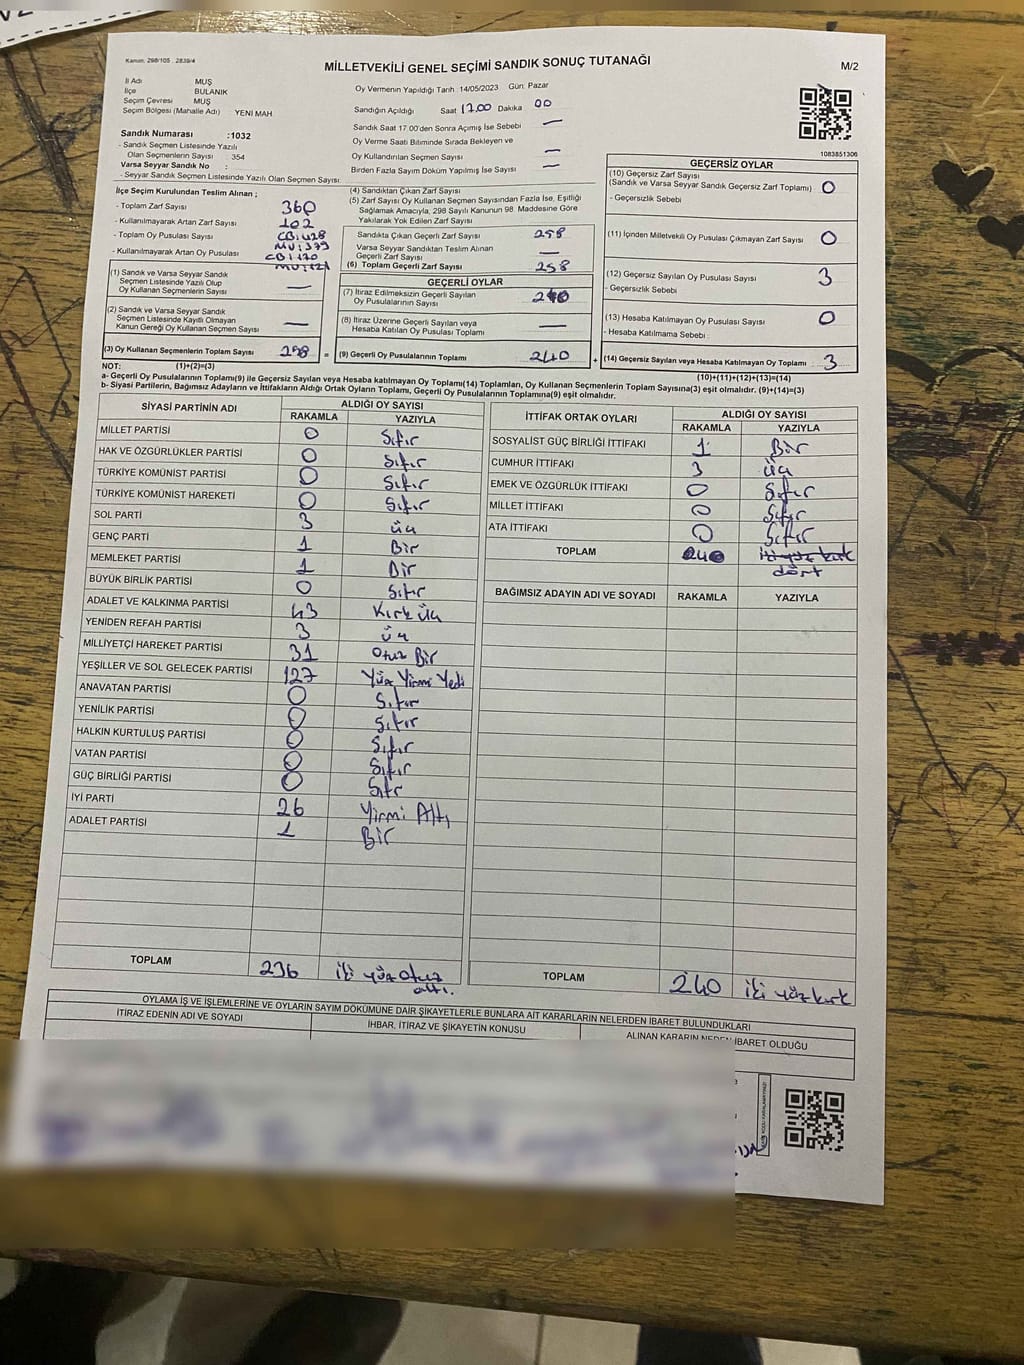 Kanun. 298/105 . 2839/4
MİLLETVEKİLİ GENEL SEÇİMİ SANDIK SONUÇ TUTANAĞI
M/2
İl Adı MUŞ
İlçe BULANIK
Seçim Çevresi MUŞ
Seçim Bölgesi (Mahalle Adı) YENİ MAH
Sandık Numarası :1032
- Sandık Seçmen Listesinde Yazılı
Olan Seçmenlerin Sayısı : 354
Varsa Seyyar Sandık No :
- Seyyar Sandık Seçmen Listesinde Yazılı Olan Seçmen Sayısı
Oy Vermenin Yapıldığı Tarih :14/05/2023 Gün: Pazar
Sandığın Açıldığı Saat 17.00 Dakika 00
Sandık Saat 17.00'den Sonra Açımış İse Sebebi —
Oy Verme Saati Bitiminde Sırada Bekleyen ve
Oy Kullandırılan Seçmen Sayısı —
Birden Fazla Sayım Döküm Yapılmış İse Sayısı —
1083851306
İlçe Seçim Kurulundan Teslim Alınan ;
- Toplam Zarf Sayısı 360
- Kullanılmayarak Artan Zarf Sayısı 102
- Toplam Oy Pusulası Sayısı CB:428
MV:379
- Kullanılmayarak Artan Oy Pusulası CB:170
MV:121
(1) Sandık ve Varsa Seyyar Sandık
Seçmen Listesinde Yazılı Olup
Oy Kullanan Seçmenlerin Sayısı —
(2) Sandık ve Varsa Seyyar Sandık
Seçmen Listesinde Kayıtlı Olmayan
Kanun Gereği Oy Kullanan Seçmen Sayısı —
(3) Oy Kullanan Seçmenlerin Toplam Sayısı =
(1)+(2)=(3)
(4) Sandıktan Çıkan Zarf Sayısı
(5) Zarf Sayısı Oy Kullanan Seçmen Sayısından Fazla İse, Eşitliği
Sağlamak Amacıyla, 298 Sayılı Kanunun 98. Maddesine Göre
Yakılarak Yok Edilen Zarf Sayısı
Sandıkta Çıkan Geçerli Zarf Sayısı 258
Varsa Seyyar Sandıktan Teslim Alınan
Geçerli Zarf Sayısı —
(6) Toplam Geçerli Zarf Sayısı 258
GEÇERLİ OYLAR
(7) İtiraz Edilmeksizin Geçerli Sayılan
Oy Pusulalarının Sayısı 240
(8) İtiraz Üzerine Geçerli Sayılan veya
Hesaba Katılan Oy Pusulası Toplamı —
(9) Geçerli Oy Pusulalarının Toplamı 240 +
GEÇERSİZ OYLAR
(10) Geçersiz Zarf Sayısı
(Sandık ve Varsa Seyyar Sandık Geçersiz Zarf Toplamı) 0
- Geçersizlik Sebebi
(11) İçinden Milletvekili Oy Pusulası Çıkmayan Zarf Sayısı 0
(12) Geçersiz Sayılan Oy Pusulası Sayısı 3
- Geçersizlik Sebebi
(13) Hesaba Katılmayan Oy Pusulası Sayısı 0
- Hesaba Katılmama Sebebi :
(14) Geçersiz Sayılan veya Hesaba Katılmayan Oy Toplamı 3
(10)+(11)+(12)+(13)=(14)
NOT:
a- Geçerli Oy Pusulalarının Toplamı(9) ile Geçersiz Sayılan veya Hesaba katılmayan Oy Toplamı(14) Toplamları, Oy Kullanan Seçmenlerin Toplam Sayısına(3) eşit olmalıdır. (9)+(14)=(3)
b- Siyasi Partilerin, Bağımsız Adayların ve İttifakların Aldığı Ortak Oyların Toplamı, Geçerli Oy Pusulalarının Toplamına(9) eşit olmalıdır.
SİYASİ PARTİNİN ADI ALDIĞI OY SAYISI
RAKAMLA YAZIYLA
MİLLET PARTİSİ 0 Sıfır
HAK VE ÖZGÜRLÜKLER PARTİSİ 0 Sıfır
TÜRKİYE KOMÜNİST PARTİSİ 0 Sıfır
TÜRKİYE KOMÜNİST HAREKETİ 0 Sıfır
SOL PARTİ 3 üç
GENÇ PARTİ 1 Bir
MEMLEKET PARTİSİ 1 Bir
BÜYÜK BİRLİK PARTİSİ 0 Sıfır
ADALET VE KALKINMA PARTİSİ 43 Kırk üç
YENİDEN REFAH PARTİSİ 3 üç
MİLLİYETÇİ HAREKET PARTİSİ 31 Otuz Bir
YEŞİLLER VE SOL GELECEK PARTİSİ 127 Yüz Yirmi Yedi
ANAVATAN PARTİSİ 0 Sıfır
YENİLİK PARTİSİ 0 Sıfır
HALKIN KURTULUŞ PARTİSİ 0 Sıfır
VATAN PARTİSİ 0 Sıfır
GÜÇ BİRLİĞİ PARTİSİ 0 Sıfır
İYİ PARTİ 26 Yirmi Altı
ADALET PARTİSİ 1 Bir
TOPLAM 236 iki yüz otuz
altı.
İTTİFAK ORTAK OYLARI ALDIĞI OY SAYISI
RAKAMLA YAZIYLA
SOSYALİST GÜÇ BİRLİĞİ İTTİFAKI 1 Bir
CUMHUR İTTİFAKI 3 üç
EMEK VE ÖZGÜRLÜK İTTİFAKI 0 Sıfır
MİLLET İTTİFAKI 0 Sıfır
ATA İTTİFAKI 0 Sıfır
TOPLAM iki yüz kırk
dört
BAĞIMSIZ ADAYIN ADI VE SOYADI RAKAMLA YAZIYLA
TOPLAM 240 iki yüz kırk
OYLAMA İŞ VE İŞLEMLERİNE VE OYLARIN SAYIM DÖKÜMÜNE DAİR ŞİKAYETLERLE BUNLARA AİT KARARLARIN NELERDEN İBARET BULUNDUKLARI
İTİRAZ EDENİN ADI VE SOYADI
İHBAR, İTİRAZ VE ŞİKAYETİN KONUSU
ALINAN KARARIN NEDEN İBARET OLDUĞU